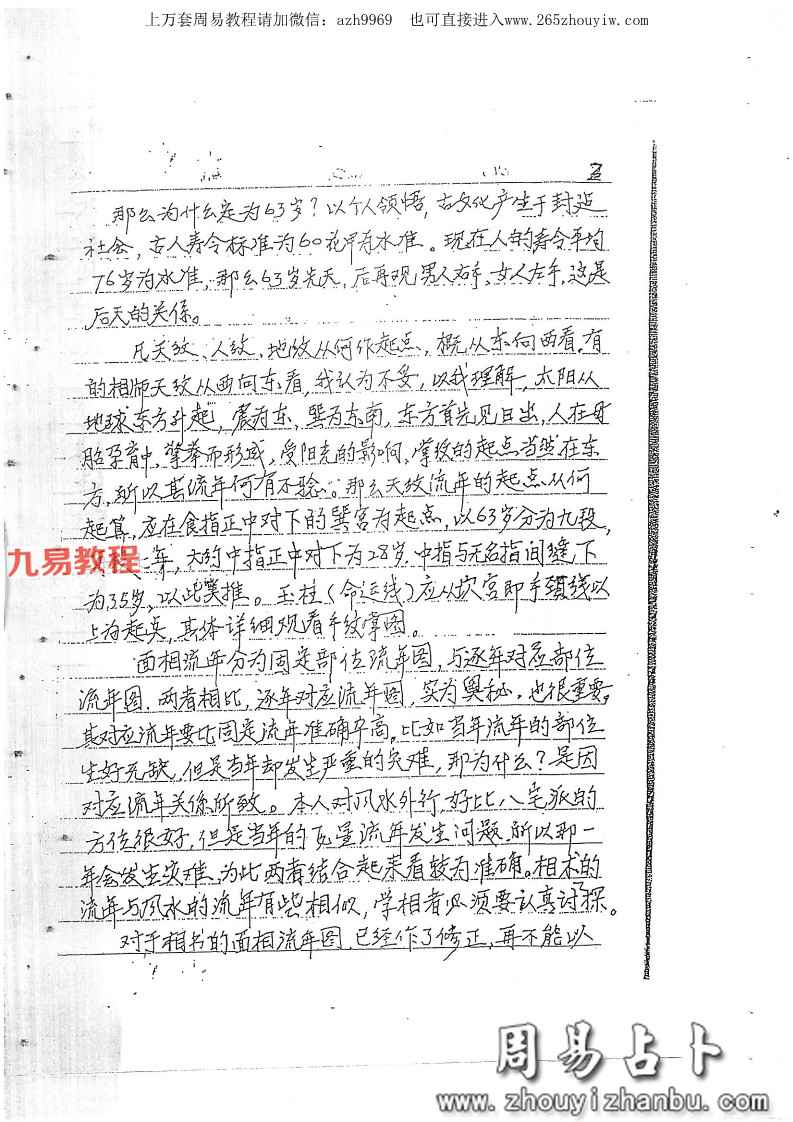 上万套周易教程请加微信：azh9969 也可直接进入www.265zhouyiw.com
2
那么为什么定为63岁？以个人领悟，古文化产生于封建
社会，古人寿令标准为60花甲为水准。现在人的寿令平均
76岁为水准，那么63岁先天，后再观男人右手，女人左手，这是
后天的关係。
凡天纹、人纹、地纹从何作起点，概从东向西看，有
的相师天纹从西向东看，我认为不妥，以我理解，太阳从
地球东方升起，震为东，巽为东南，东方首先见日出，人在母
胎孕育中，擎拳而形成，受阳光的影响，掌纹的起点当然在东
方，所以其流年何有不验。那么天纹流年的起点从何
起算，应在食指正中对下的巽宫为起点，以63岁分为九段，
年，大约中指正中对下为28岁，中指与无名指间缝下
为35岁，以此类推。玉柱（命运线）应从坎宫即手颈线以
上为起点，具体详细观看手纹掌图。
面相流年分为固定部位流年图，与逐年对应部位
流年图，两者相比，逐年对应流年图，实为奥秘，也很重要，
其对应流年要比固定流年准确率高。比如当年流年的部位
生好无缺，但是当年却发生严重的灾难，那为什么？是因
对应流年关係所致。本人对风水外行，好比八宅派的
方位很好，但是当年的 星流年发生问题，所以那一
年会发生灾难，为此两者结合起来看较为准确。相术的
流年与风水的流年有些相似，学相者必须要认真讨探。
对于相书的面相流年图，已经作了修正，再不能以
九易教程
周易占卜
www.zhouyizhanbu.com